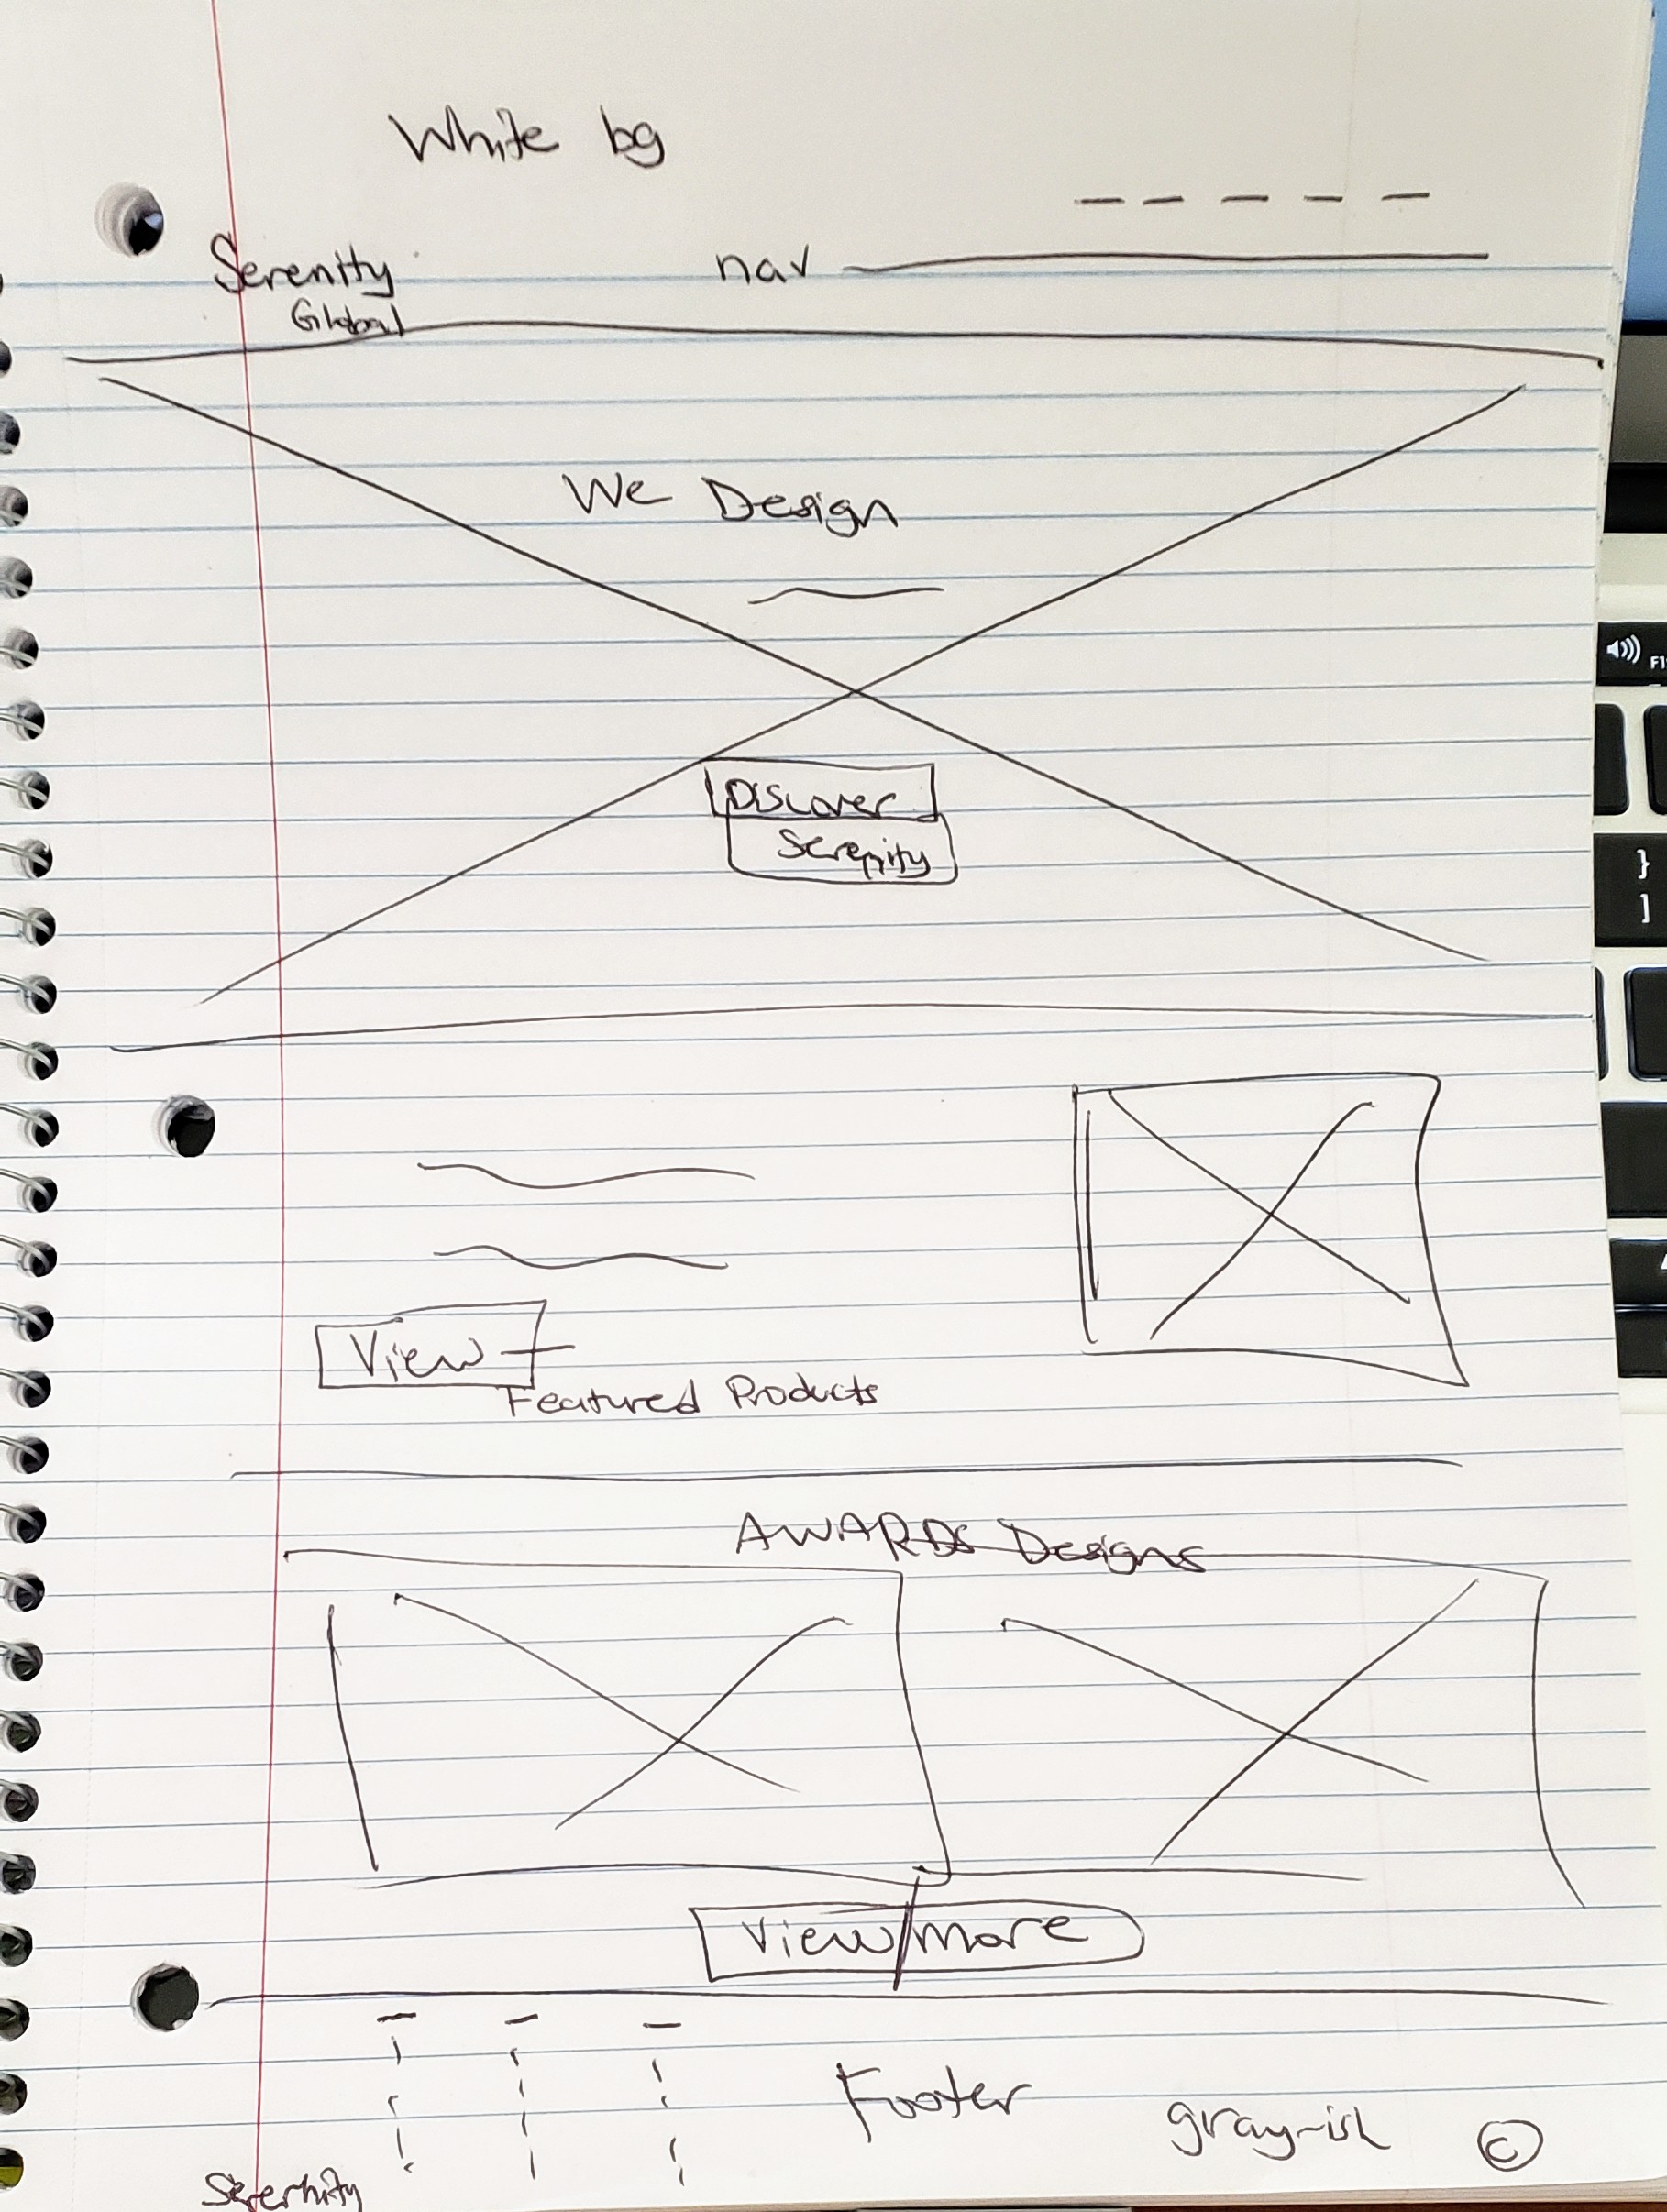 White bg
Serenity
Global
nav
We Design
Discover
Serenity
View
Featured Products
AWARDS Designs
View more
Footer
gray-ish ©
F1
}
]